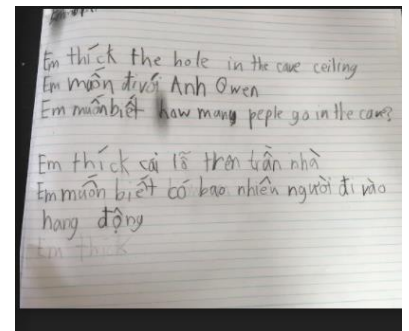 Em thíck the hole in the cave ceiling
Em muốn đi với Anh Owen
Em muốn biết how many peple go in the cave?
Em thíck cái lỗ trên trần nhà
Em muốn biết có bao nhiên người đi vào
hang động
Em thick